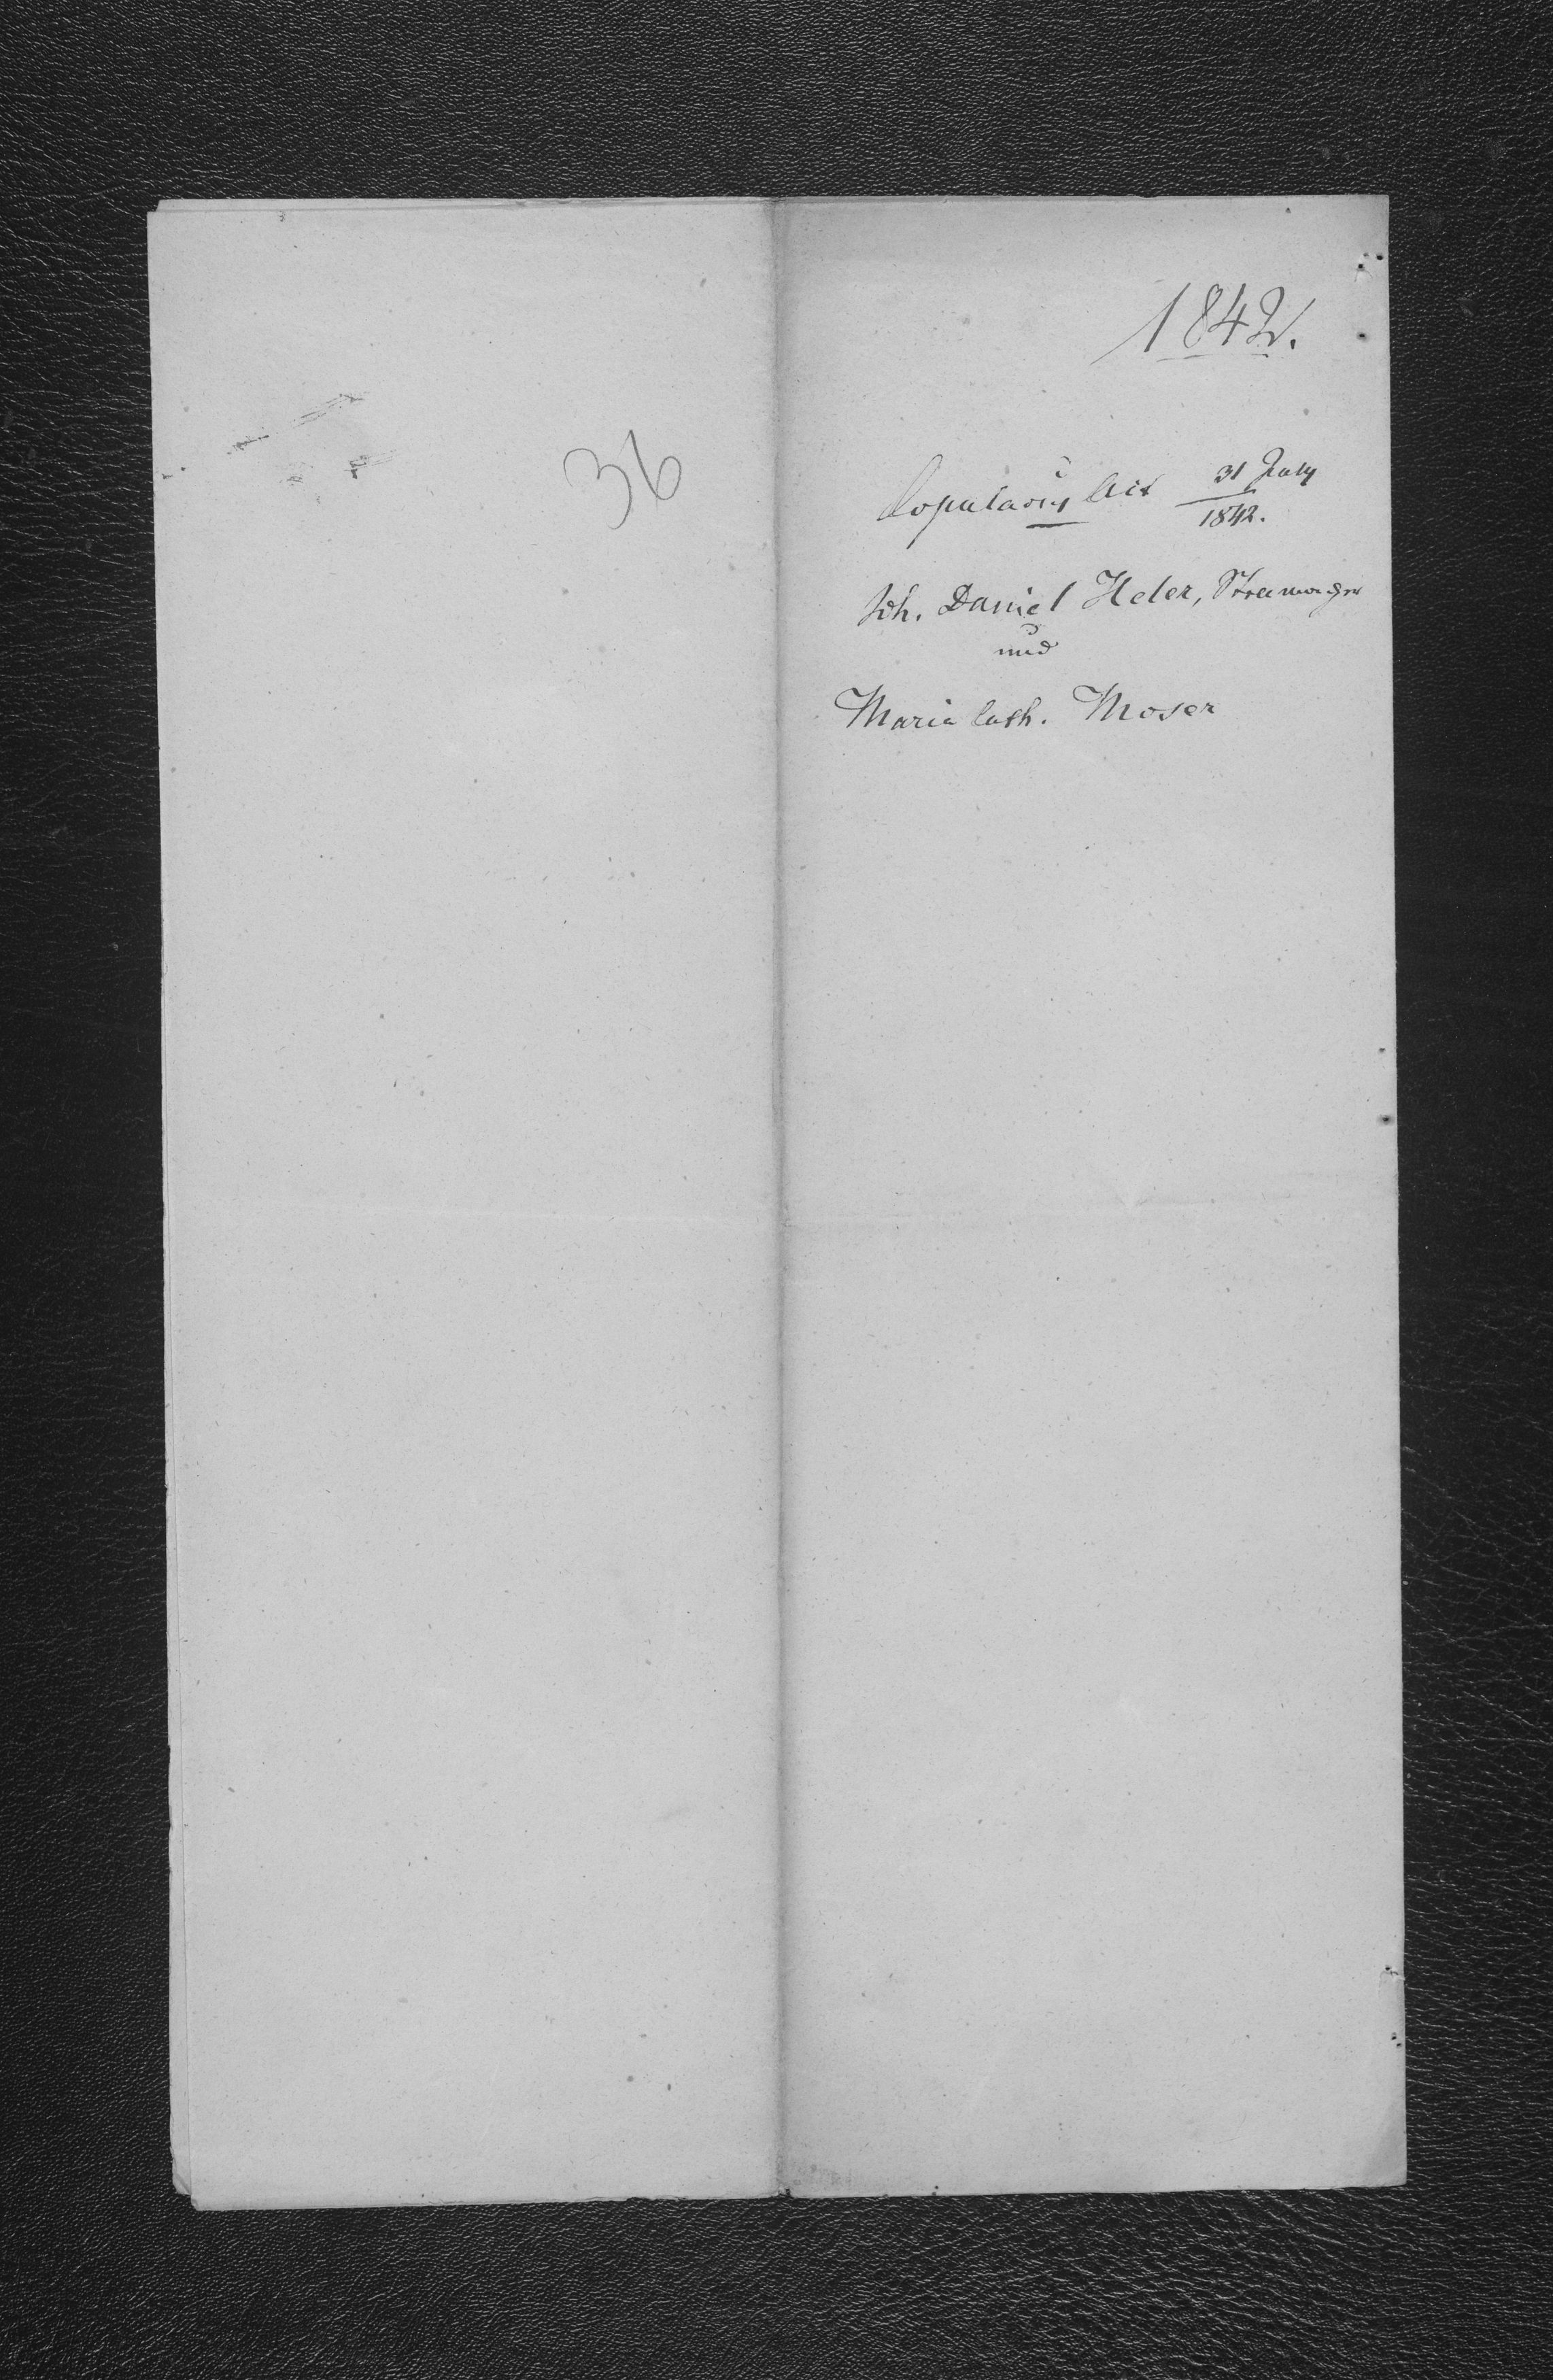 1842.
36
Copulations Act 31 July 1842.
Joh. Daniel Heler,
und
Maria Cath. Moser